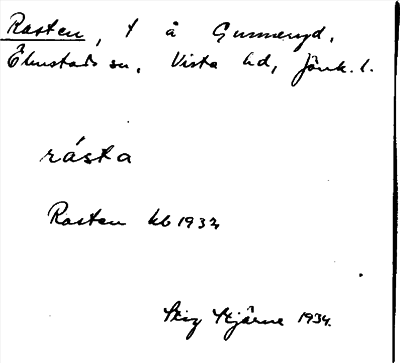 Rasten, t å Gunneryd,
Ölmstads sn, Vista hd, Jönk. l.
råsta
Rasten kb 1932
Stig Stjärne 1934.